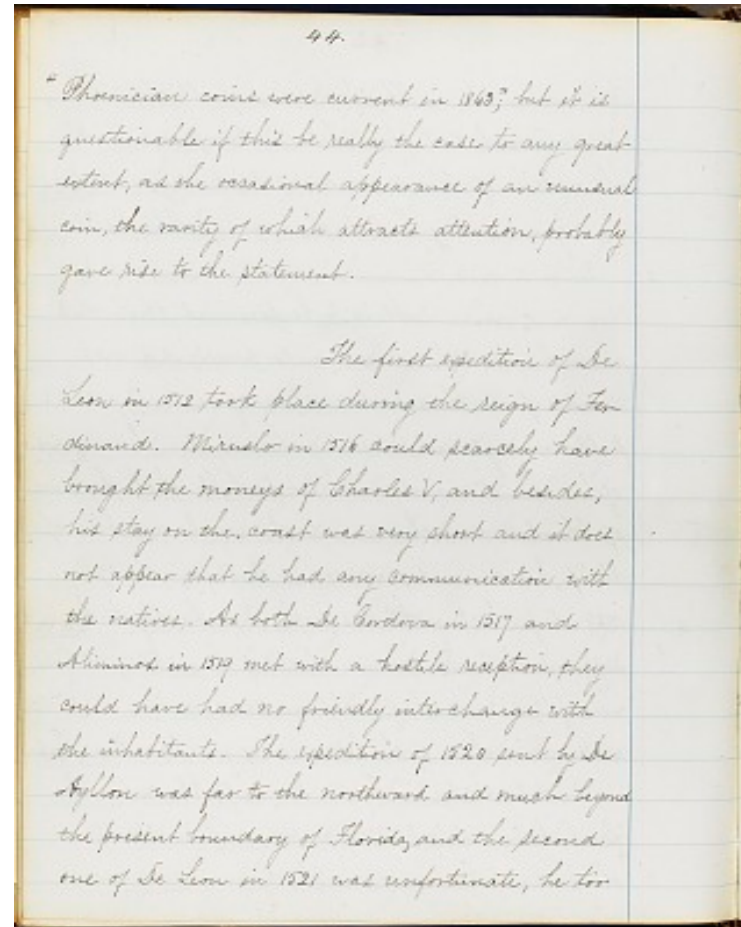 44.
"Phoenician coins were current in 1863"; but it is
questionable if this be really the case to any great
extent, as the occasional appearance of an unusual
coin, the rarity of which attracts attention, probably
gave rise to the statement.
The first expedition of De
Leon in 1512 took place during the reign of Fer
dinand. Miruelo in 1516 could scarcely have
brought the moneys of Charles V, and besides,
his stay on the coast was very short and it does
not appear that he had any communication with
the natives. As both De Cordova in 1517 and
Aliminos in 1519 met with a hostile reception, they
could have had no friendly interchange with
the inhabitants. The expedition of 1520 sent by De
Ayllon was far to the northward and much beyond
the present boundary of Florida, and the second
one of De Leon in 1521 was unfortunate, he too